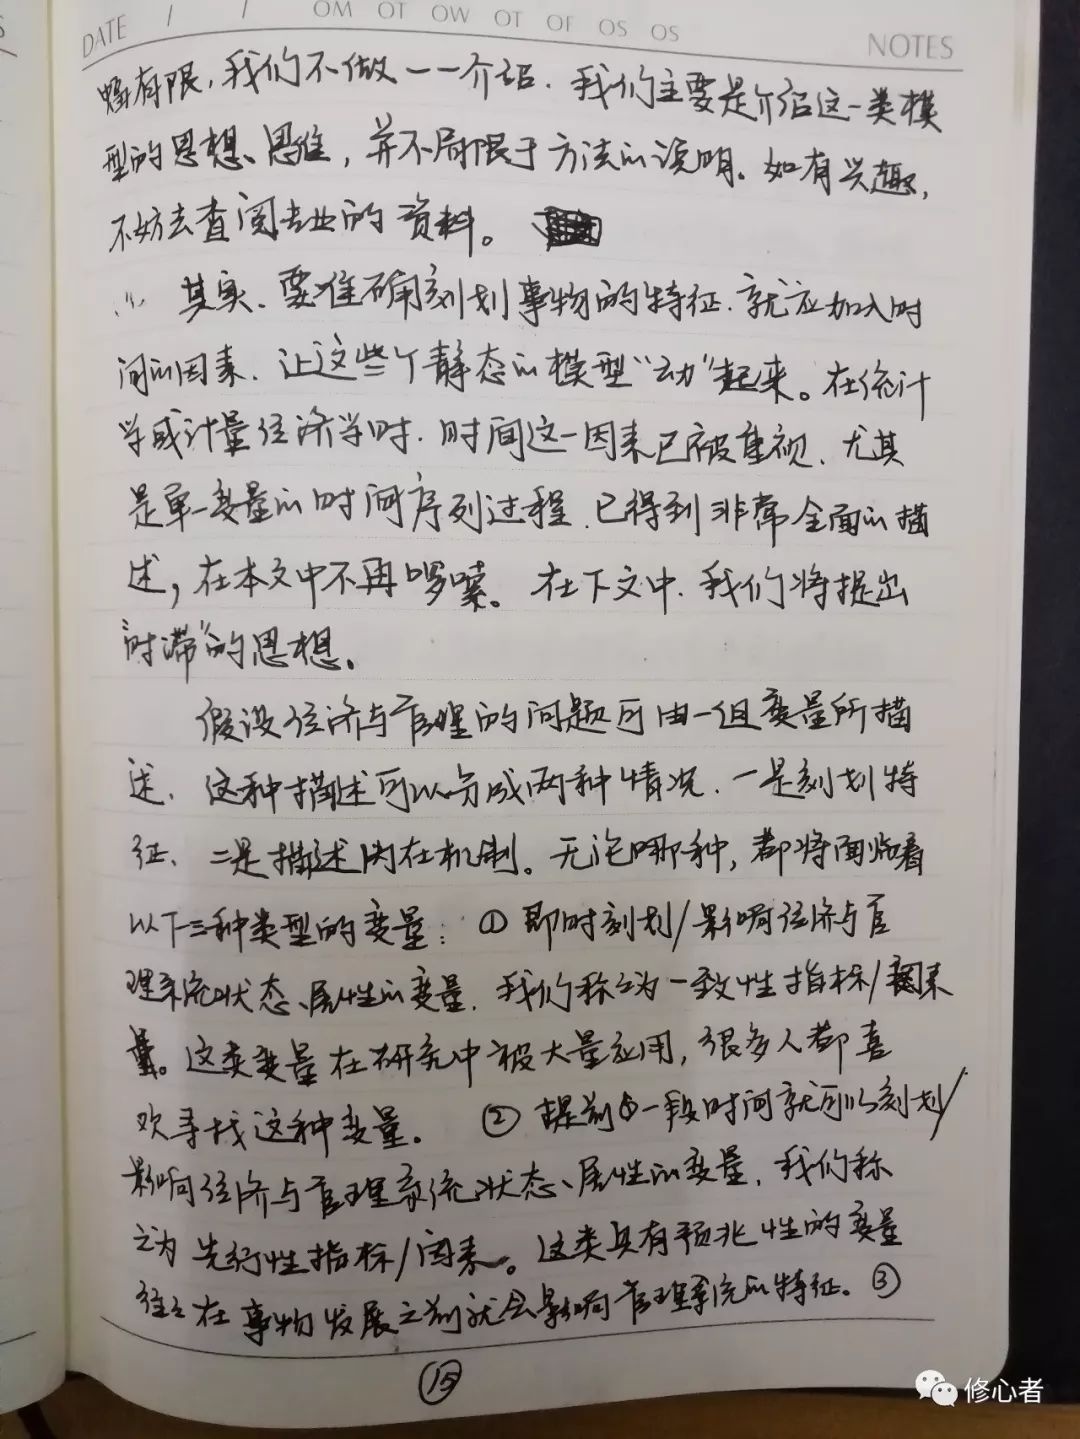 DATE / / OM OT OW OT OF OS OS NOTES
有限，我们不做一一介绍．我们主要是介绍这一类模
型的思想、思维，并不局限于方法的说明。如有兴趣，
不妨去查阅专业的资料。
其实、要准确刻划事物的特征．就应加入时
间的因素．让这些个静态的模型“动”起来。在统计
学或计量经济学时．时间这一因素已被重视．尤其
是单一变量的时间序列过程．已得到非常全面的描
述，在本文中不再啰嗦。在下文中．我们将提出
“时滞”的思想。
假设经济与管理的问题可由一组变量所描
述．这种描述可以分成两种情况．一是刻划特
征、二是描述内在机制。无论哪种，都将面临着
以下三种类型的变量：①即时刻划/影响经济与管
理系统状态、属性的变量．我们称之为一致性指标/因素
量。这类变量在研究中被大量应用，很多人都喜
欢寻找这种变量。②提前一段时间就可以刻划/
影响经济与管理系统状态、属性的变量．我们称
之为先行性指标/因素。这类具有预兆性的变量
往往在事物发展之前就会影响管理系统的特征。③
⑮
修心者